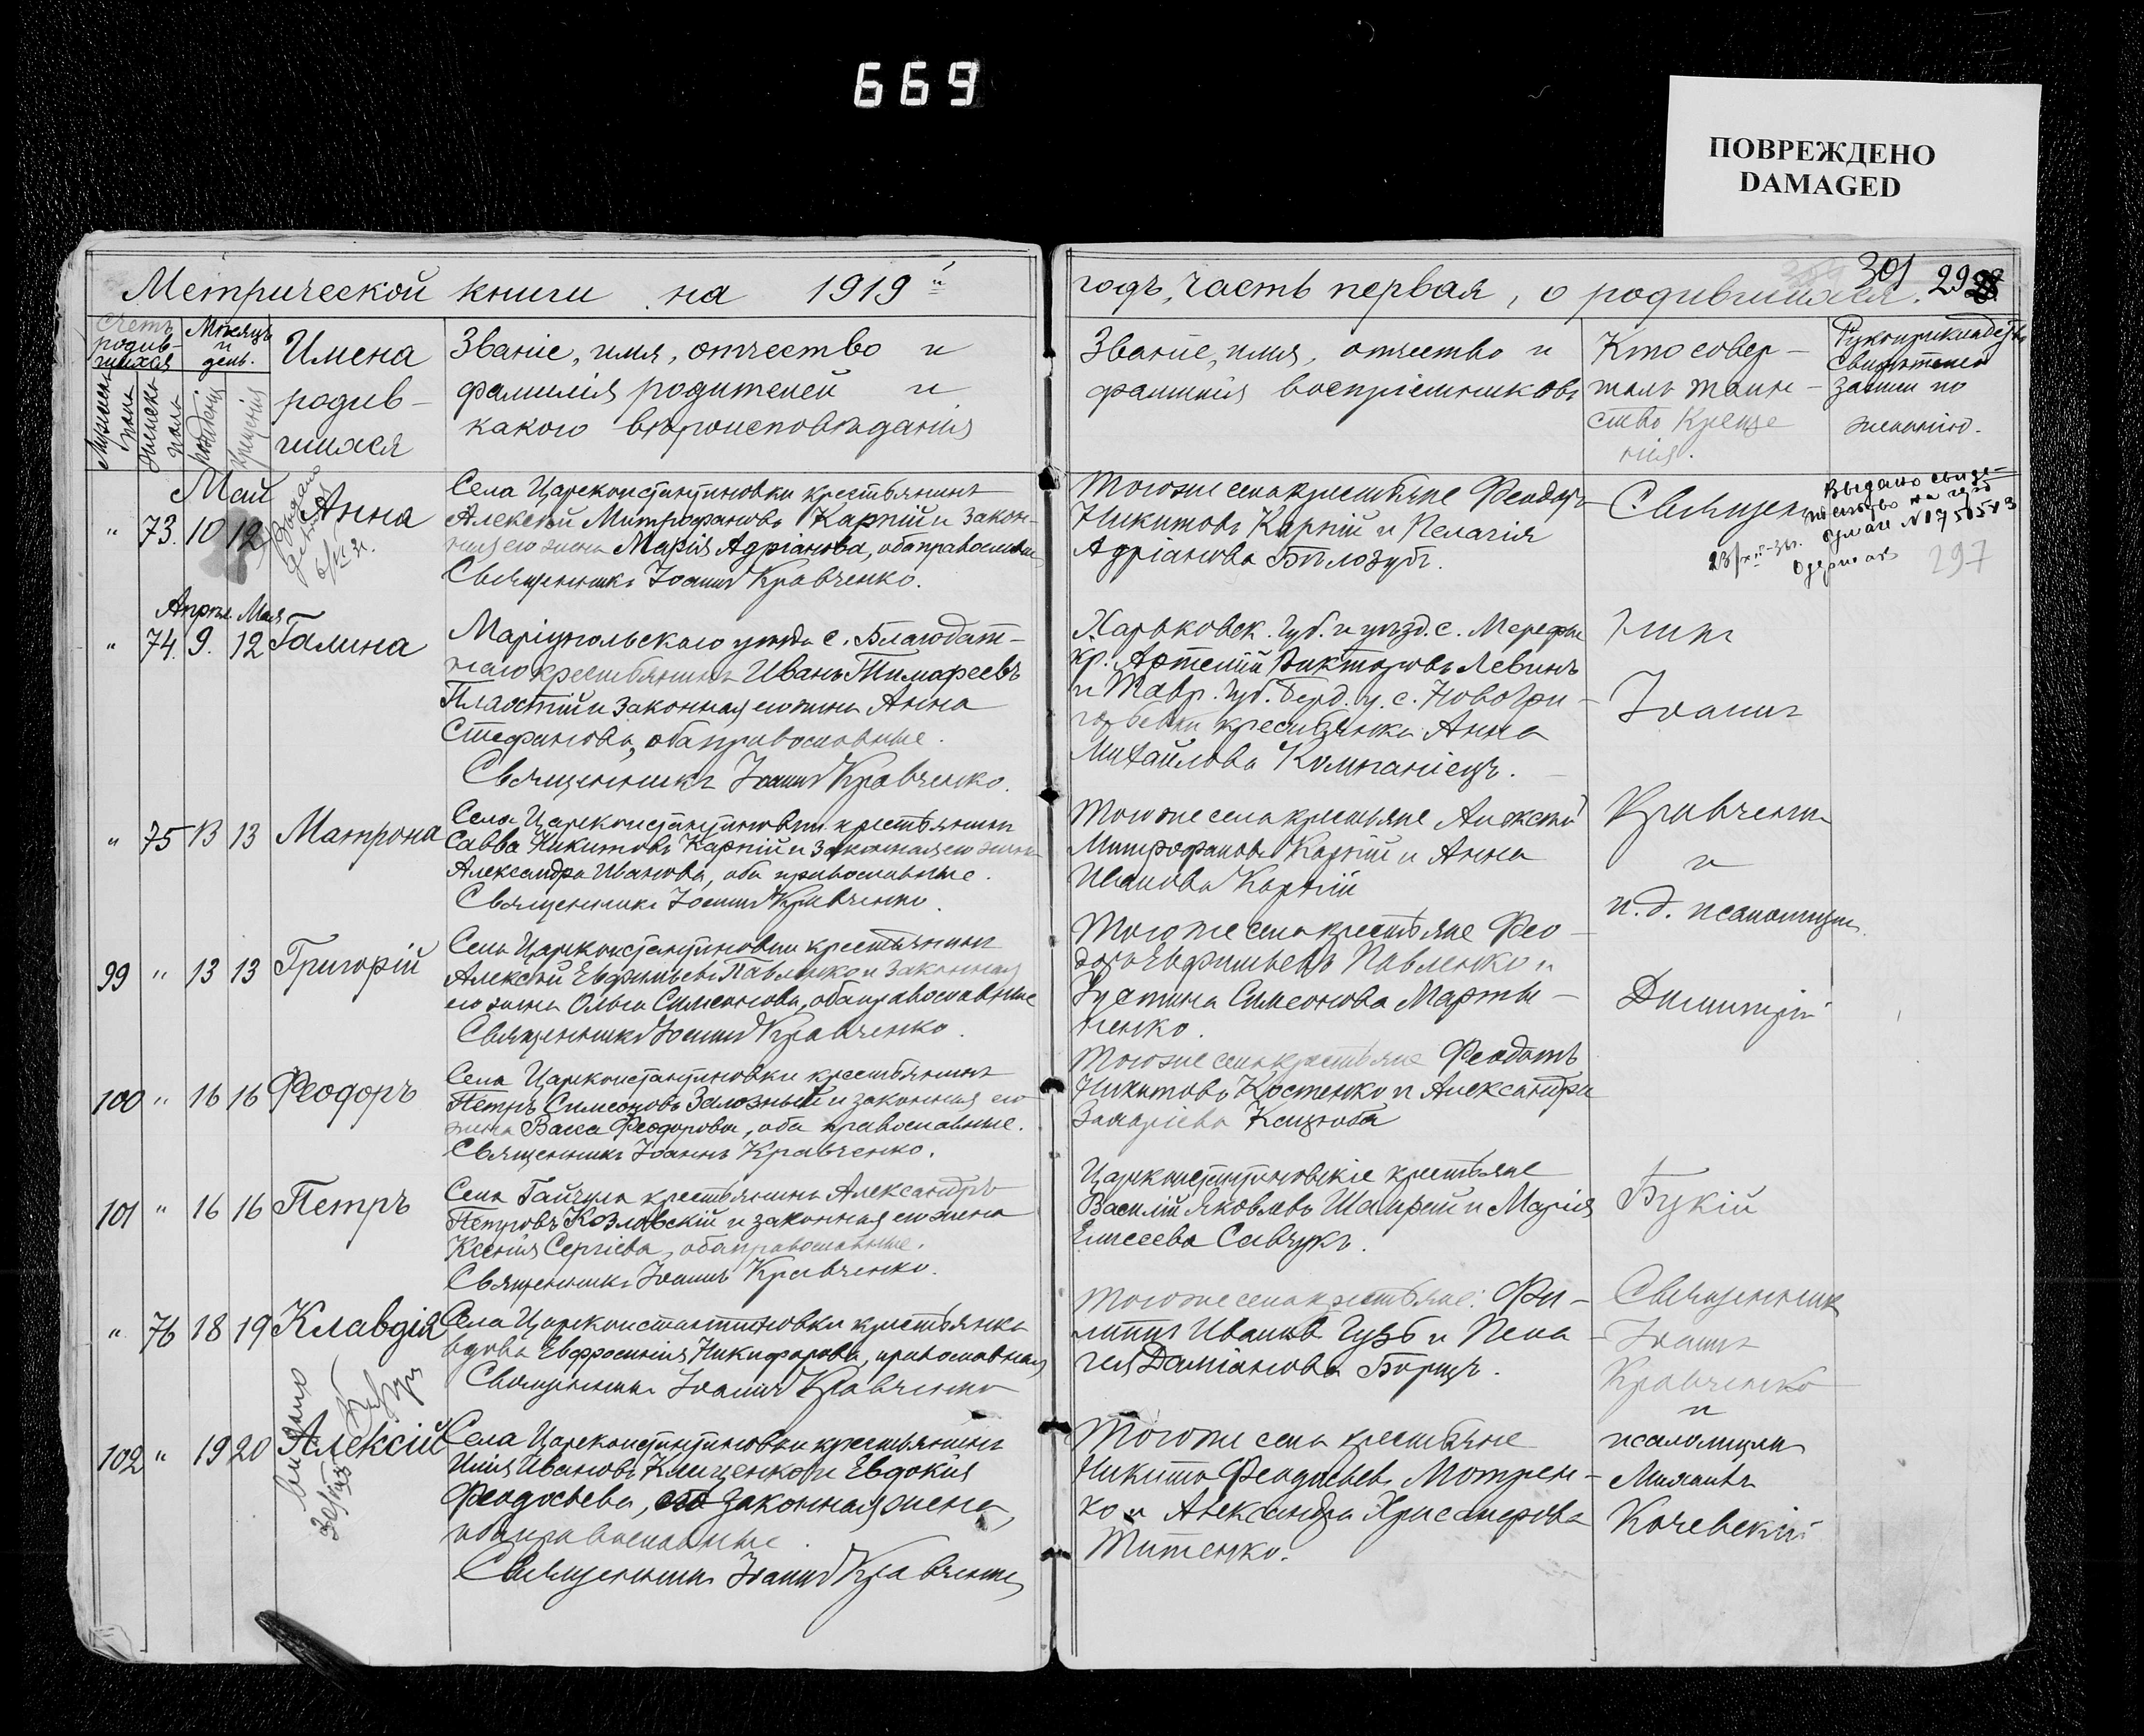 669
ПОВРЕЖДЕНО
DAMAGED
Метрической книги на 1919 й
годъ, часть первая, о родившихся.
301 29
Счетъ родив-шихся
Мѣсяцъ и день.
Мужеска пола
Женска пола
рожденія
крещенія
Имена
родив-
шихся
Званіе, имя, отчество и
фамилія родителей и
какого вѣроисповѣданія
Званіе, имя, отчество и
фамилія воспріемниковъ
Кто совер-
шалъ таин-
ство Креще
нія.
Рукоприкладство
свидѣтелей
записи по
желанію.
Май
" 73. 10 12 Анна
Села Цареконстантиновки крестьянинъ
Алексѣй Митрофановъ Карпій и закон-
ная его жена Марія Адріанова, оба православные
Священникъ Іоаннъ Кравченко.
Того же села крестьяне Феодоръ
Никитовъ Карпій и Пелагія
Адріанова Бѣлозубъ.
Выдано свиде-
297
Апрѣль Мая
" 74. 9. 12 Галина
Маріупольскаго уѣзда с. Благодат-
наго крестьянинъ Иванъ Тимофеевъ
законная его жена Анна
Стефанова, оба православные.
Священникъ Іоаннъ Кравченко.
Харьковск. губ. и уѣзд. с. Мерефы
кр. Артемій Викторовъ Левинъ
и Тавр. губ. Берд. у. с. Новогри-
крестьянка Анна
Михайлова Компаніецъ.
" 75 13 13 Матрона
Села Цареконстантиновки крестьянинъ
Савва Никитовъ Карпій и законная его жена
Александра Иванова, оба православные.
Священникъ Іоаннъ Кравченко.
Того же села крестьяне Алексѣй
Митрофановъ Карпій и Анна
Иванова Карпій
99 " 13 13 Григорій
Села Цареконстантиновки крестьянинъ
Алексѣй Евфимьевъ Павленко и законная
его жена Ольга Симеонова, оба православные
Священникъ Іоаннъ Кравченко.
Того же села крестьяне Фео-
доръ Евфимьевъ Павленко и
Іустина Симеонова Марты-
ненко.
100 " 16 16 Феодоръ
Села Цареконстантиновки крестьянинъ
Петръ Симеоновъ Зализный и законная его
жена Васса Феодорова, оба православные.
Священникъ Іоаннъ Кравченко.
Того же села крестьяне Феодотъ
Никитовъ Костенко и Александра
Захаріева
101 " 16 16 Петръ
Села Гайчула крестьянинъ Александръ
Петровъ Козловскій и законная его жена
Ксенія Сергіева, оба православные.
Священникъ Іоаннъ Кравченко.
Цареконстантиновскіе крестьяне
Василій Яковлевъ Шамрай и Марія
Елисеева Савчукъ.
" 76 18 19 Клавдія
Села Цареконстантиновки крестьянка
вдова Евфросинія Никифорова, православная
Священникъ Іоаннъ Кравченко
Того же села крестьяне: Фи-
липпъ Ивановъ Гузь и Пела
гея Даміанова Борщъ.
102 " 19 20 Алексій
Села Цареконстантиновки крестьянинъ
Илія Ивановъ Клищенко и Евдокія
Феодосьева, его законная жена,
оба православные.
Священникъ Іоаннъ Кравченко
Того же села крестьяне
Никита Феодосьевъ Мотрен-
ко и Александра Хрисанфова
Титенко.
Священ
никъ
Іоаннъ
Кравченко
и
и. д. псаломщик
Димитрій
Буцкій
Священникъ
Іоаннъ
Кравченко
и
псаломщикъ
Михаилъ
Качевскій